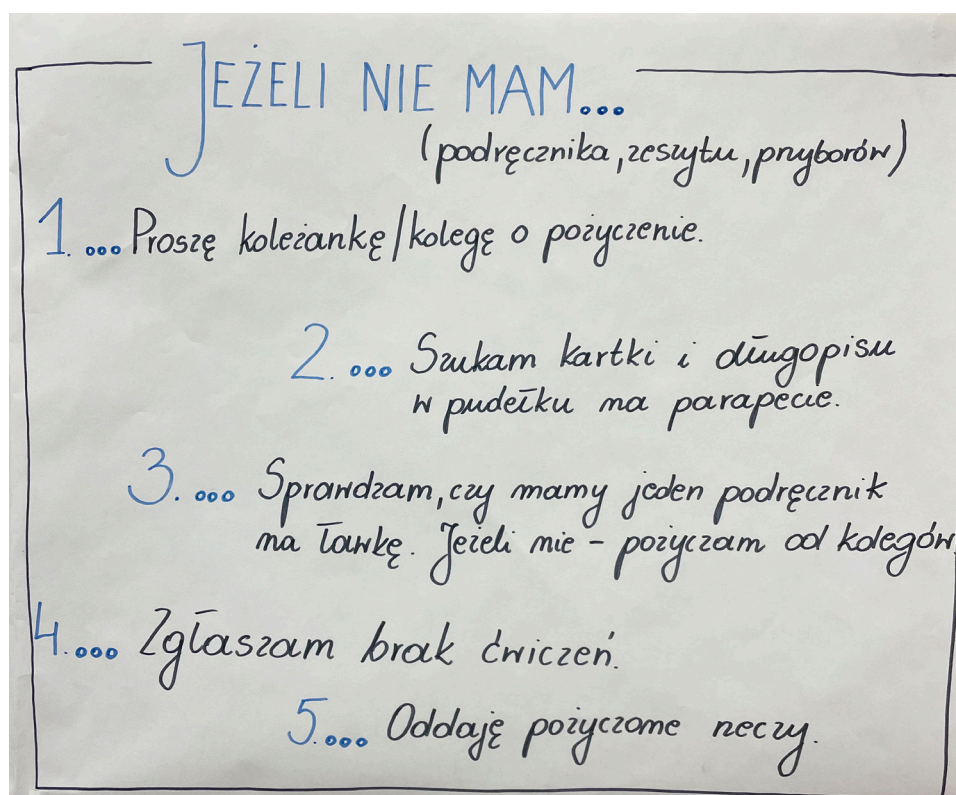 JEŻELI NIE MAM...
(podręcznika, zeszytu, przyborów)
1. ... Proszę koleżankę/kolegę o pożyczenie.
2. ... Szukam kartki i długopisu
w pudełku na parapecie.
3. ... Sprawdzam, czy mamy jeden podręcznik
na ławkę. Jeżeli nie - pożyczam od kolegów.
4. ... Zgłaszam brak ćwiczeń.
5. ... Oddaję pożyczone rzeczy.